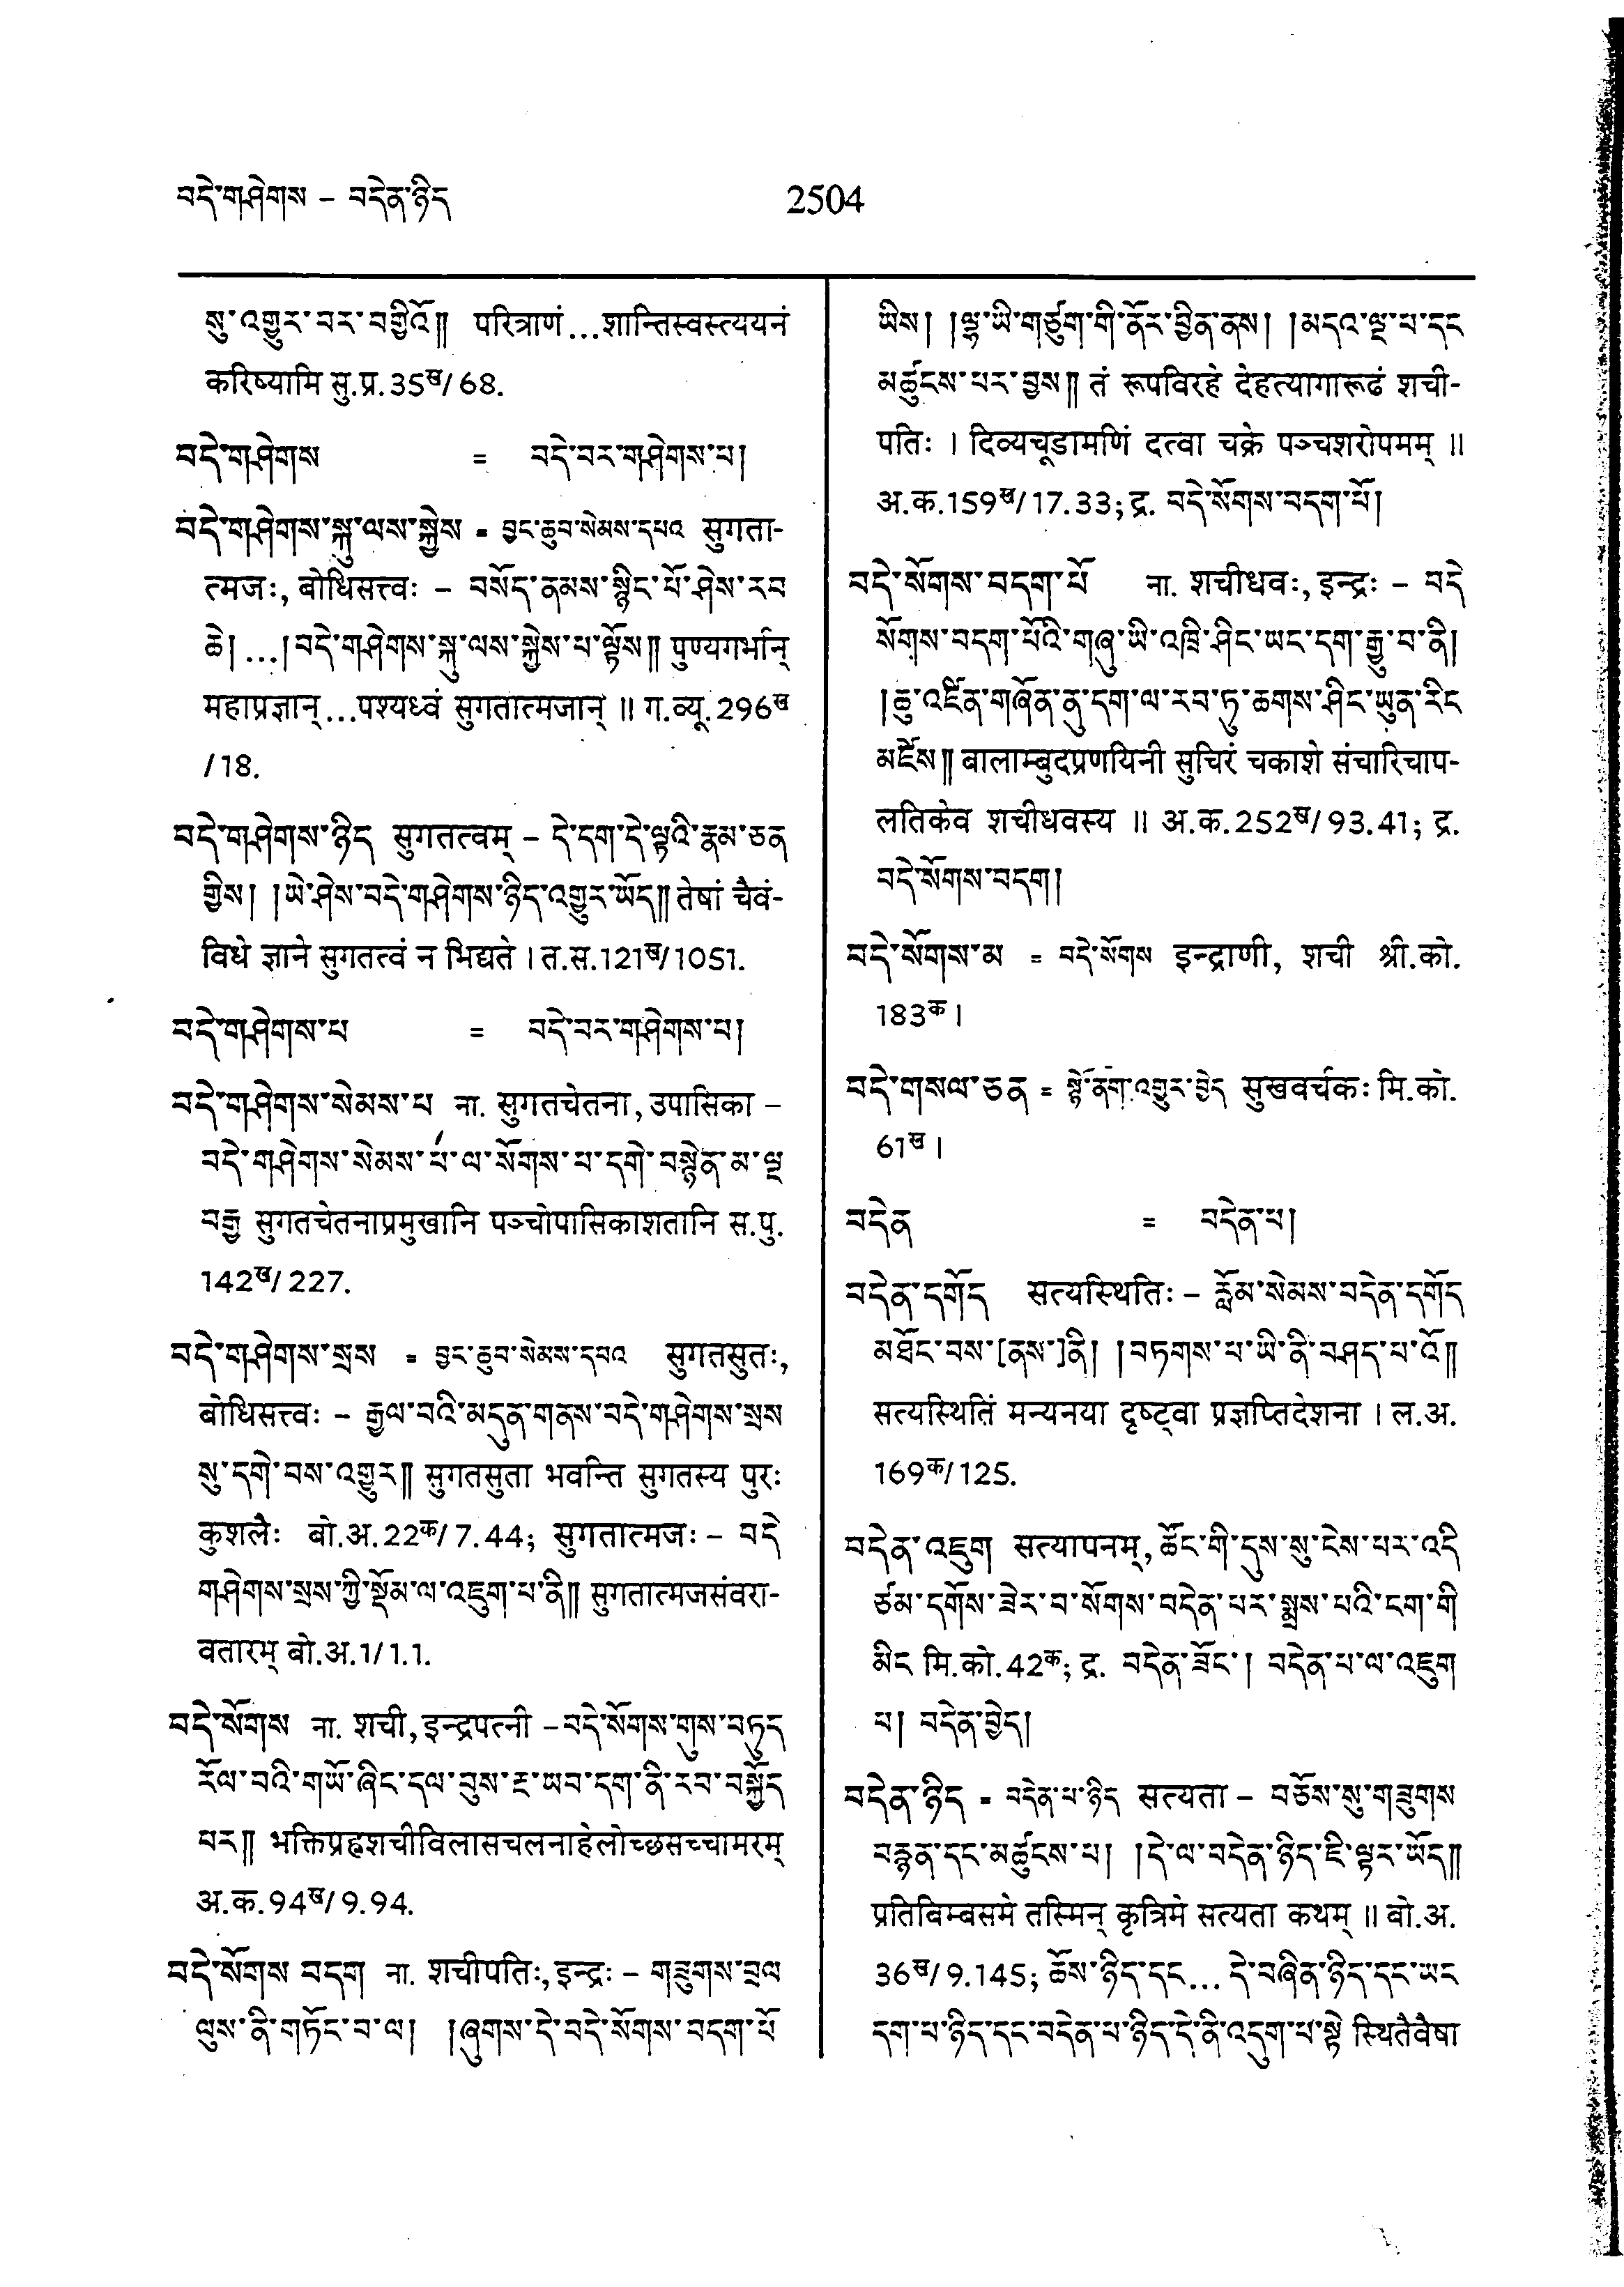 བདེ་གཤེགས – བདེན་ཉིད
2504
སུ་འགྱུར་བར་བགྱིའོ༎ परित्राणं...शान्तिस्वस्त्ययनं
करिष्यामि सु.प्र.35ख/68.
བདེ་གཤེགས = བདེ་བར་གཤེགས་པ།
བདེ་གཤེགས་སྐུ་ལས་སྐྱེས = བྱང་ཆུབ་སེམས་དཔའ सुगता-
त्मजः, बोधिसत्त्वः – བསོད་ནམས་སྙིང་པོ་ཤེས་རབ
ཆེ། ...།བདེ་གཤེགས་སྐུ་ལས་སྐྱེས་པ་ལྟོས༎ पुण्यगर्भान्
महाप्रज्ञान्...पश्यध्वं सुगतात्मजान् ॥ ग.व्यू.296ख
/18.
བདེ་གཤེགས་ཉིད सुगतत्वम् – དེ་དག་དེ་ལྟའི་རྣམ་ཅན
གྱིས། །ཡེ་ཤེས་བདེ་གཤེགས་ཉིད་འགྱུར་ཡོད༎ तेषां चैवं-
विधे ज्ञाने सुगतत्वं न भिद्यते । त.स.121ख/1051.
བདེ་གཤེགས་པ = བདེ་བར་གཤེགས་པ།
བདེ་གཤེགས་སེམས་པ ना. सुगतचेतना, उपासिका –
བདེ་གཤེགས་སེམས་པ་ལ་སོགས་པ་དགེ་བསྙེན་མ་ལྔ
བརྒྱ सुगतचेतनाप्रमुखानि पञ्चोपासिकाशतानि स.पु.
142ख/227.
བདེ་གཤེགས་སྲས = བྱང་ཆུབ་སེམས་དཔའ सुगतसुतः,
बोधिसत्त्वः – རྒྱལ་བའི་མདུན་གནས་བདེ་གཤེགས་སྲས
སུ་དགེ་བས་འགྱུར༎ सुगतसुता भवन्ति सुगतस्य पुरः
कुशलैः बो.अ.22क/7.44; सुगतात्मजः – བདེ
གཤེགས་སྲས་ཀྱི་སྡོམ་ལ་འཇུག་པ་ནི༎ सुगतात्मजसंवरा-
वतारम् बो.अ.1/1.1.
བདེ་སོགས ना. शची, इन्द्रपत्नी – བདེ་སོགས་གུས་བཏུད
རོལ་བའི་གཡོ་ཞིང་དལ་བུས་རྔ་ཡབ་དག་ནི་རབ་བསྐྱོད
པར༎ भक्तिप्रह्वशचीविलासचलनाहेलोच्छसच्चामरम्
अ.क.94ख/9.94.
བདེ་སོགས བདག ना. शचीपतिः, इन्द्रः – གཟུགས་བྲལ
ལུས་ནི་གཏོང་བ་ལ། །ཞུགས་དེ་བདེ་སོགས་བདག་པོ
ཡིས། །ལྷ་ཡི་གཙུག་གི་ནོར་བྱིན་ནས། །མདའ་ལྔ་པ་དང
མཚུངས་པར་བྱས༎ तं रूपविरहे देहत्यागारूढं शची-
पतिः । दिव्यचूडामणिं दत्वा चक्रे पञ्चशरोपमम् ॥
अ.क.159ख/17.33; द्र. བདེ་སོགས་བདག་པོ།
བདེ་སོགས་བདག་པོ ना. शचीधवः, इन्द्रः – བདེ
སོགས་བདག་པོའི་གཞུ་ཡི་འཁྲི་ཤིང་ཡང་དག་རྒྱུ་བ་ནི།
།ཆུ་འཛིན་གཞོན་ནུ་དག་ལ་རབ་ཏུ་ཆགས་ཤིང་ཡུན་རིང
མཛེས༎ बालाम्बुदप्रणयिनी सुचिरं चकाशे संचारिचाप-
लतिकेव शचीधवस्य ॥ अ.क.252ख/93.41; द्र.
བདེ་སོགས་བདག།
བདེ་སོགས་མ = བདེ་སོགས इन्द्राणी, शची श्री.को.
183क ।
བདེ་གསལ་ཅན = སྙེ་ནག་འགྱུར་བྱེད सुखवर्चकः मि.को.
61ख ।
བདེན = བདེན་པ།
བདེན་དགོད सत्यस्थितिः – རློམ་སེམས་བདེན་དགོད
མཐོང་བས་[ནས་]ནི། །བཏགས་པ་ཡི་ནི་བཤད་པ་འོ༎
सत्यस्थितिं मन्यनया दृष्ट्वा प्रज्ञप्तिदेशना । ल.अ.
169क/125.
བདེན་འཇུག सत्यापनम्, ཚོང་གི་དུས་སུ་ངེས་པར་འདི
ཙམ་དགོས་ཟེར་བ་སོགས་བདེན་པར་སྨྲས་པའི་ངག་གི
མིང मि.को.42क; द्र. བདེན་ཟོང་། བདེན་པ་ལ་འཇུག
པ། བདེན་བྱེད།
བདེན་ཉིད = བདེན་པ་ཉིད सत्यता – བཅོས་སུ་གཟུགས
བརྙན་དང་མཚུངས་པ། །དེ་ལ་བདེན་ཉིད་ཇི་ལྟར་ཡོད༎
प्रतिबिम्बसमे तस्मिन् कृत्रिमे सत्यता कथम् ॥ बो.अ.
36ख/9.145; ཆོས་ཉིད་དང... དེ་བཞིན་ཉིད་དང་ཡང
དག་པ་ཉིད་དང་བདེན་པ་ཉིད་དེ་ནི་འདུག་པ་སྟེ स्थितैवैषा